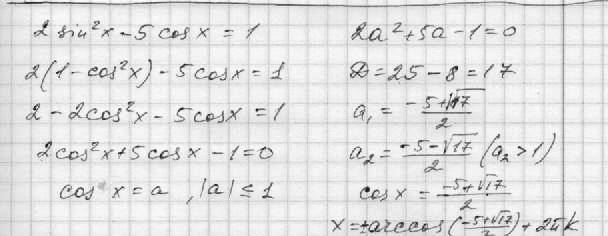 2 sin²x - 5 cos x = 1
2(1 - cos²x) - 5cosx = 1
2 - 2cos²x - 5cosx = 1
2cos²x + 5cosx - 1 = 0
cos x = a , |a| ≤ 1
2a² + 5a - 1 = 0
D = 25 - 8 = 17
a₁ = (-5+√17)/2
a₂ = (-5-√17)/2 (a₂ > 1)
cosx = (-5+√17)/2
x = ±arccos((-5+√17)/2) + 2πk